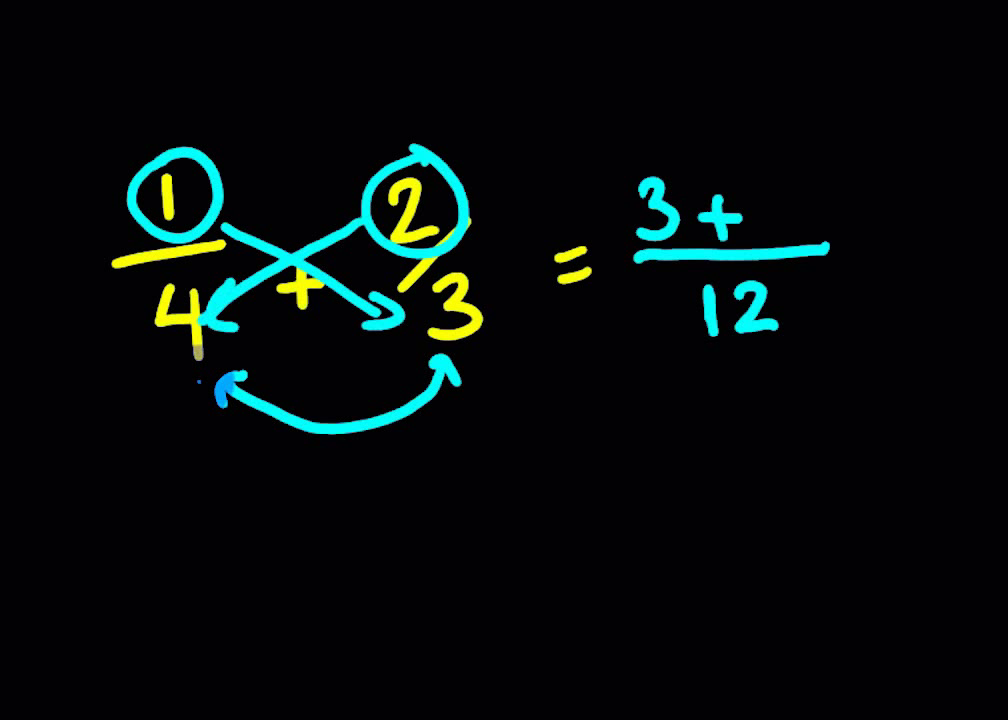 1/4 + 2/3 = 3 + /12